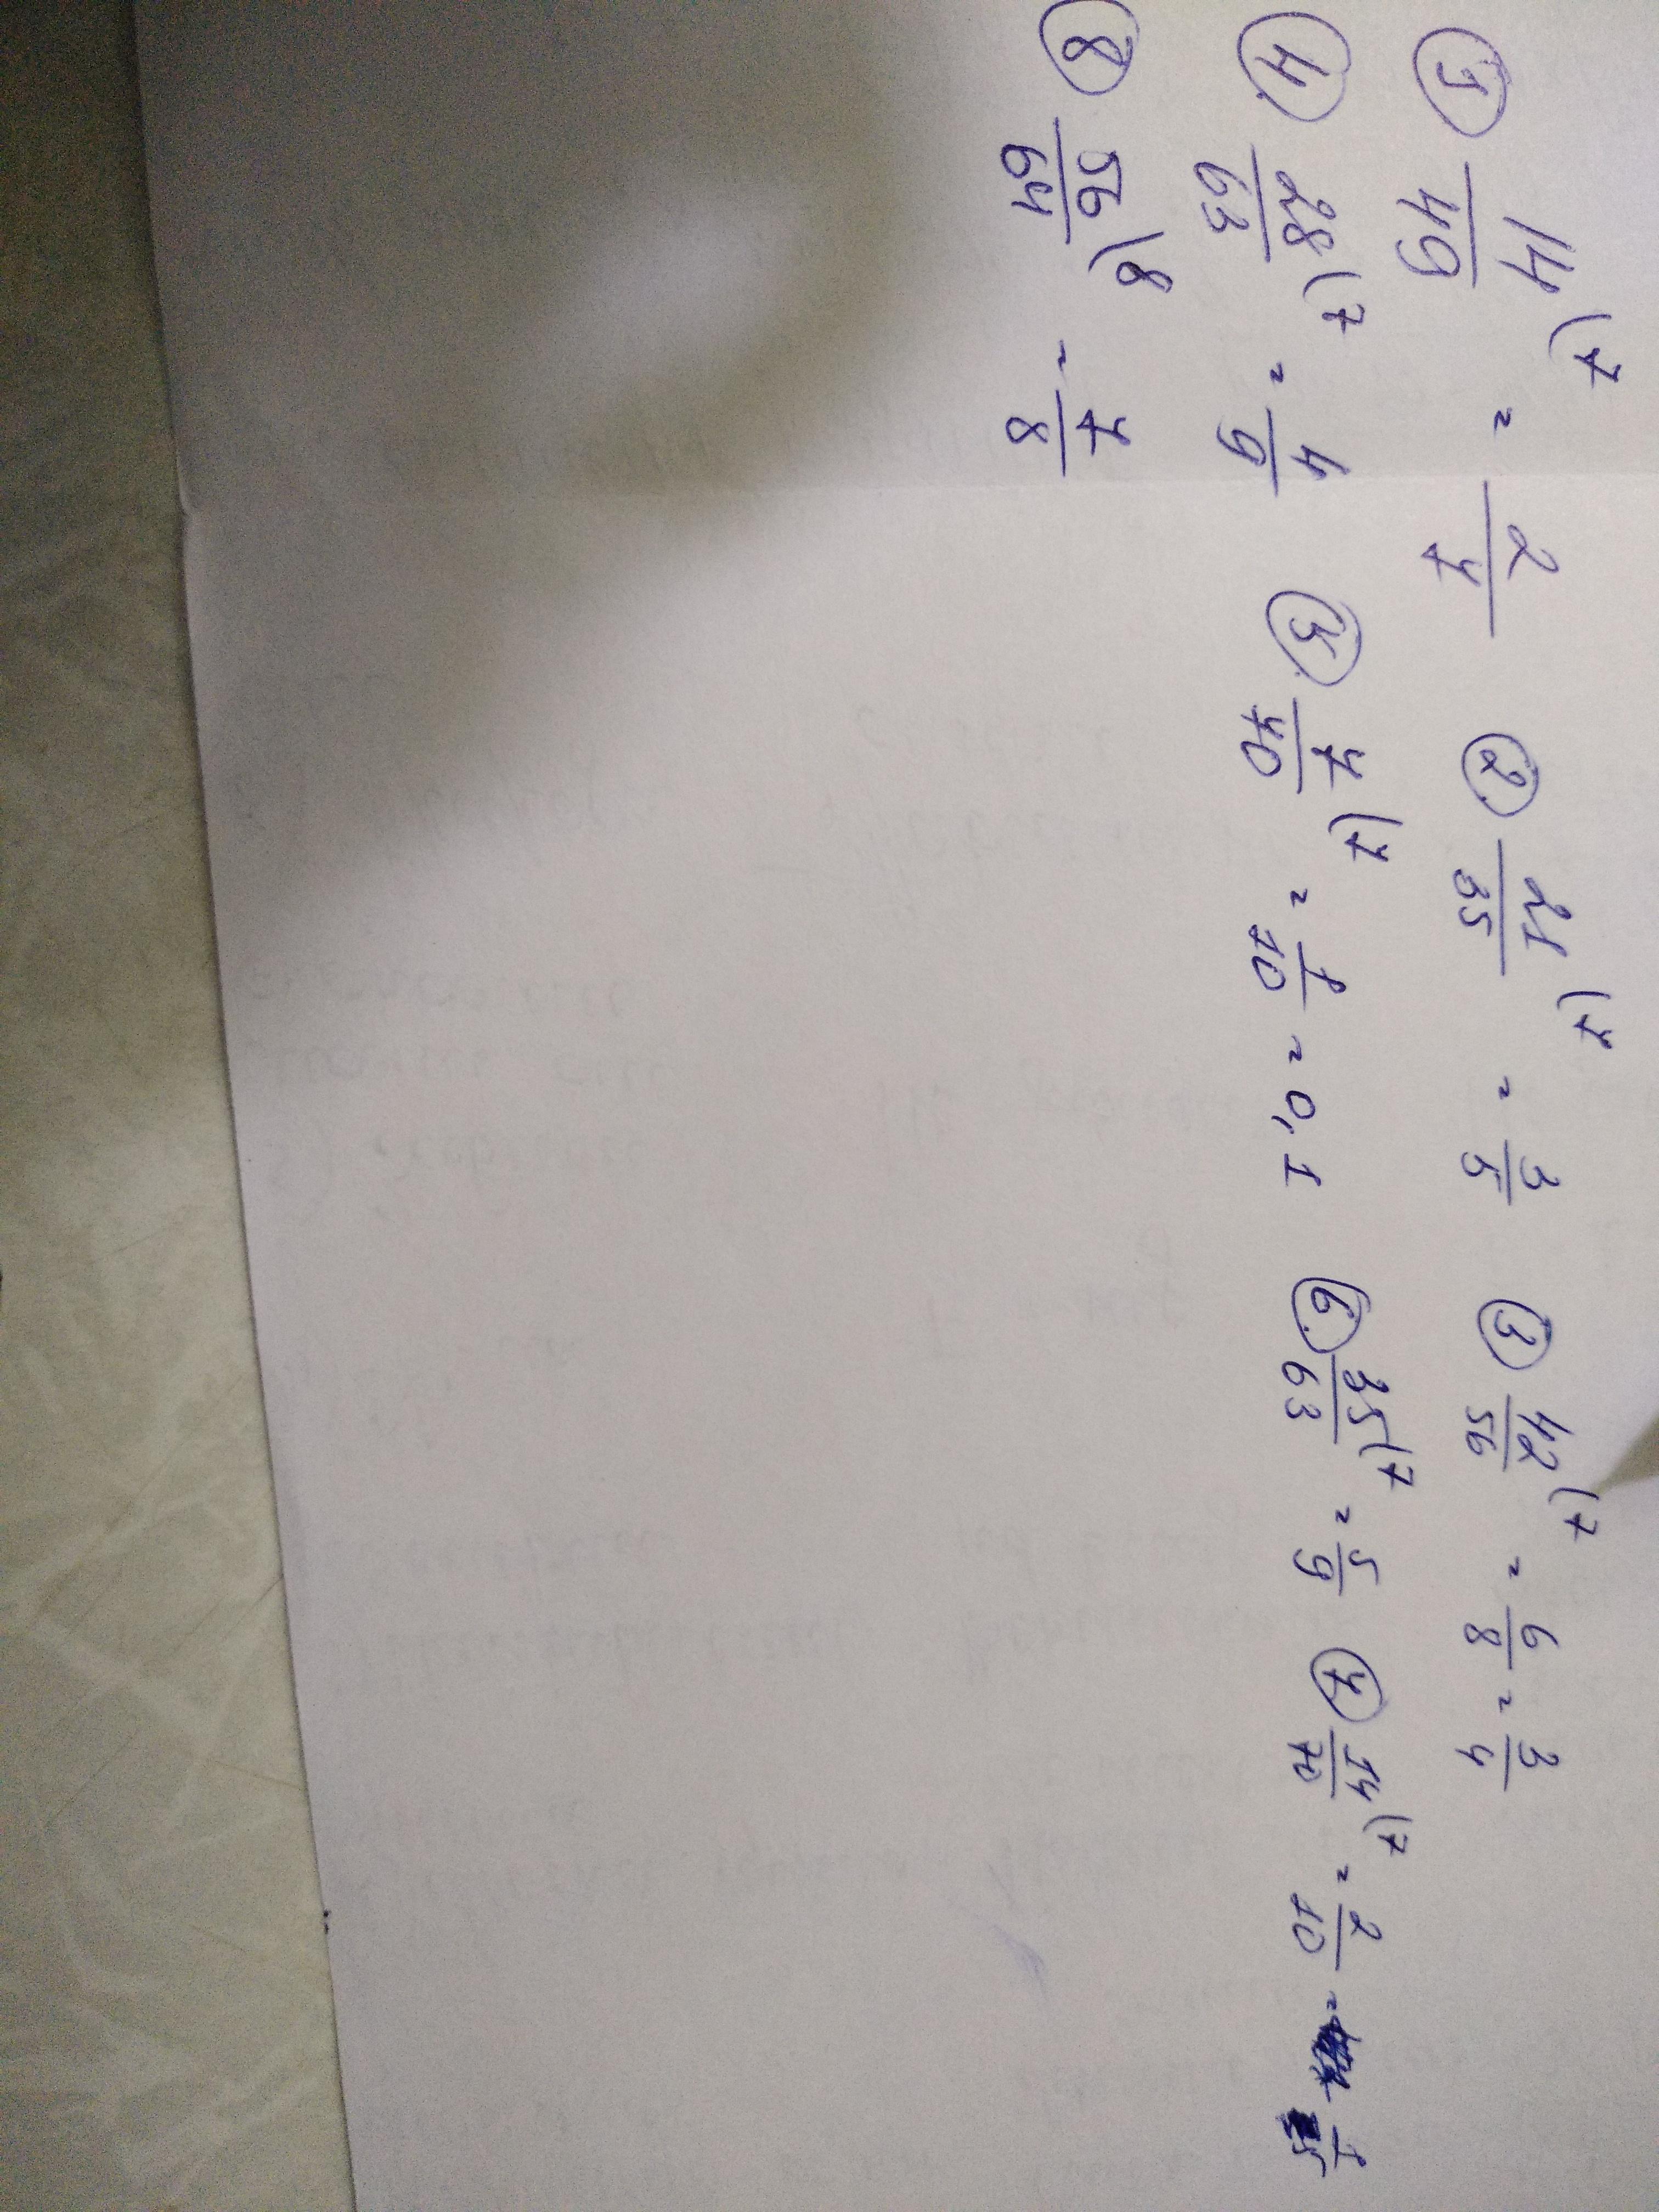 ① 14/49 (7 = 2/7 ② 21/35 (7 = 3/5 ③ 42/56 (7 = 6/8 = 3/4
④ 28/63 (7 = 4/9 ⑤ 7/70 (7 = 1/10 = 0,1 ⑥ 35/63 (7 = 5/9 ⑦ 14/70 (7 = 2/10 = 1/5
⑧ 56/64 (8 = 7/8